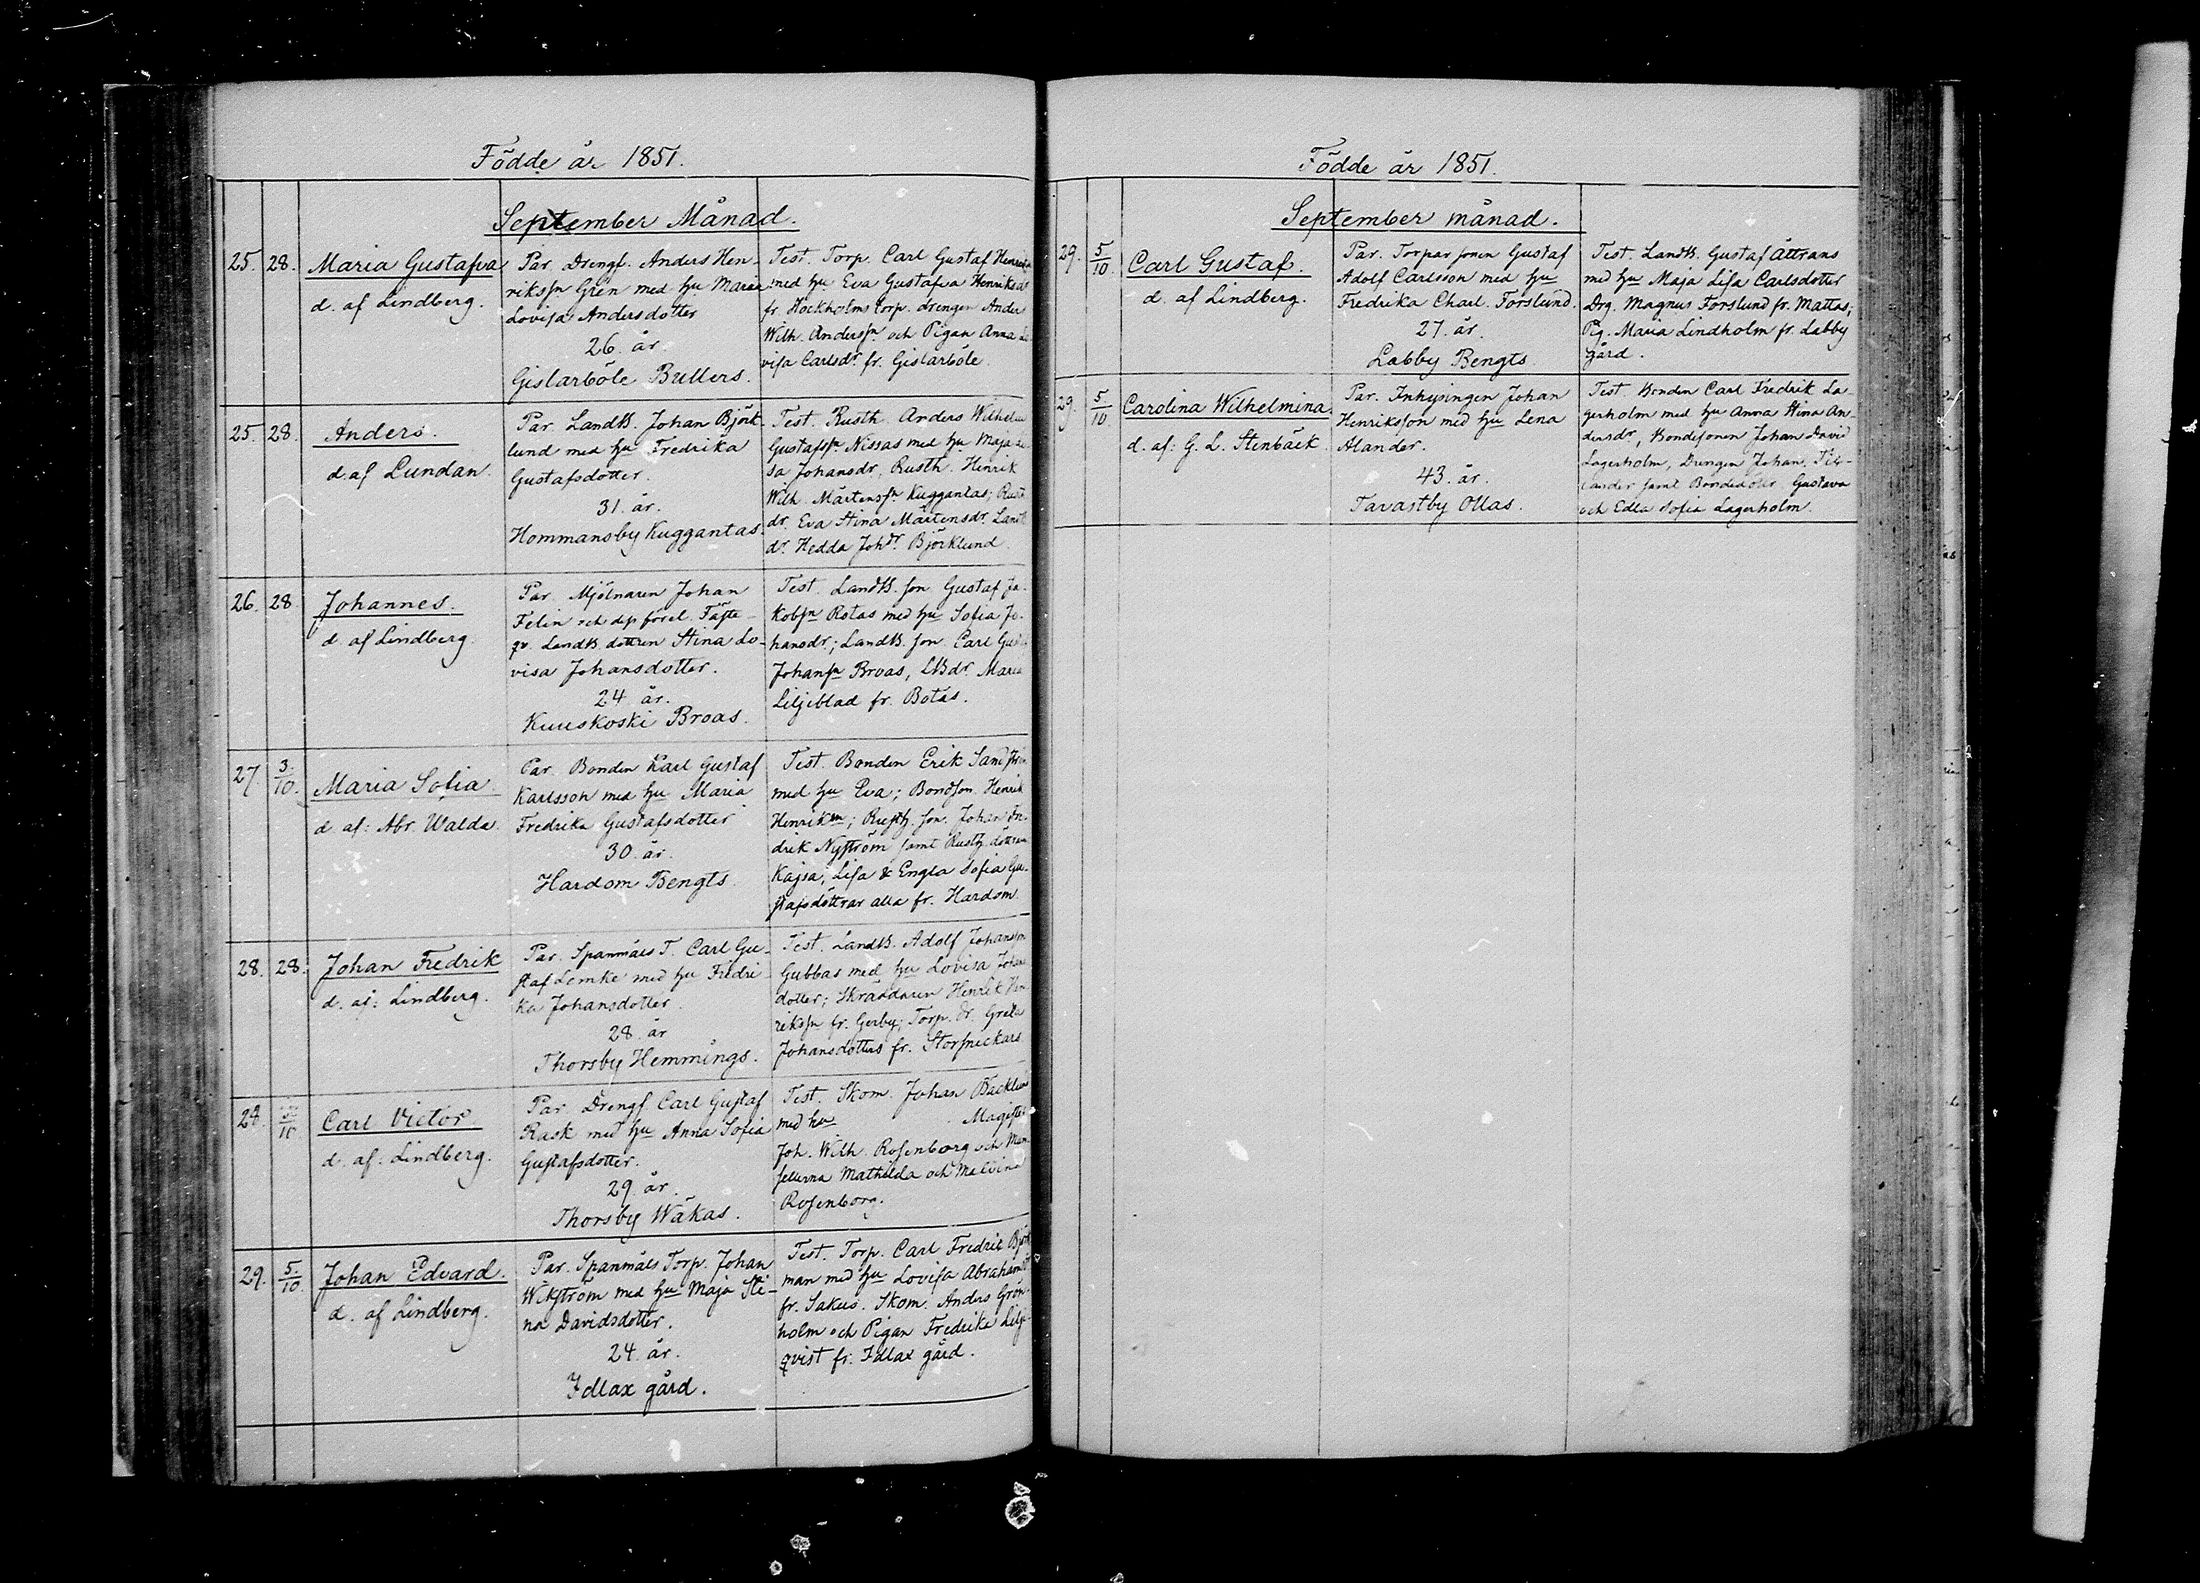 Födde år 1851.
September Månad.
25. 28. Maria Gustafva
d. af Lindberg.
Par. Drengf. Anders Hen-
riksſn Grén med hu Maria
Lovisa Andersdotter
26. år
Gislarböle Bullers.
Test. Torp. Carl Gustaf
med hu Eva Gustafva
fr. Stockholms torp. drengen Anders
Wilh. Andersſn och Pigan Anna
visa Carlsdr. fr. Gislarböle.
25. 28. Anders.
d. af Lundan.
Par. LandB. Johan Björk-
lund med hu Fredrika
Gustafsdotter.
31. år.
Hommansby Kuggantas.
Test. Rusth. Anders Wilhelm
Gustafsſn Nissas med hu Maja
sa Johansdr, Rusth. Henrik
Wilh. Mårtensſn Kuggantas; Rusth
dr. Eva Stina Mårtensdr. Land
dr. Hedda Johdr. Björklund.
26. 28 Johannes.
d. af Lindberg.
Par. Mjölnaren Johan
Felin och dess förel. Fäste-
qv. LandB. dottren Stina Lo-
visa Johansdotter.
24 år.
Kuuskoski Broas.
Test. LandB. son Gustaf Ja-
kobsſn Rotas med hu Sofia Jo-
hansdr.; LandB. son Carl
Johansſn Broas, LBdr. Maria
Liljeblad fr. Botas.
27. 3/10. Maria Sofia
d. af: Abr. Walda.
Par. Bonden Karl Gustaf
Karlsson med hu Maria
Fredrika Gustafsdotter
30. år.
Hardom Bengts.
Test. Bonden Erik Sandström
med hu Eva; Bondson. Henrik
; Rusth. son. Johan
drik Nyström samt Rusth. döttrarna
Kajsa, Lisa & Engla Sofia Gu-
stafsdöttrar alla fr. Hardom
28. 28. Johan Fredrik
d. af: Lindberg.
Par. Spanmåls T. Carl Gu-
staf Lemke med hu Fredri
ka Johansdotter
28. år
Thorsby Hemmings.
Test. LandB. Adolf Johansson
Gubbas med hu Lovisa Johans
dotter; Skräddaren Henrik Hen
riksſn fr. Gerby; Torp. dr. Greta
Johansdotter fr. Storsnickars
28. 5/10 Carl Victor
d. af: Lindberg.
Par. Drengf. Carl Gustaf
Rask med hu Anna Sofia
Gustafsdotter.
29. år.
Thorsby Wäkas.
Test. Skom. Johan Backlund
med hu Magister
Joh. Wilh. Rosenborg och Mam-
sellerna Mathilda och Malvina
Rosenborg.
29. 5/10. Johan Edvard.
d. af Lindberg.
Par. Spanmåls Torp. Johan
Wikström med hu Maja Sti-
na Davidsdotter.
24. år.
Idlax gård.
Test. Torp. Carl Fredric Björk
man med hu Lovisa
fr. Sakus. Skom. Anders Grön-
holm och Pigan Fredrika Lilje-
qvist fr. Idlax gård.
Födde år 1851.
September månad.
29. 5/10. Carl Gustaf.
d. af Lindberg.
Par. Torpar sonen Gustaf
Adolf Carlsson med hu
Fredrika Charl. Forslund.
27. år.
Labby Bengts
Test. LandB. Gustaf Åttrans
med hu Maja Lisa Carlsdotter
Drg. Magnus Forslund fr. Mattas;
Pig. Maria Lindholm fr. Labby
gård.
29. 5/10. Carolina Wilhelmina.
d. af: G. L. Stenbäck.
Par. Inhysingen Johan
Henriksson med hu Lena
Alander.
43. år.
Tavastby Ollas.
Test. Bonden Carl Fredrik La-
gerholm med hu Anna Stina An-
dersdr, Bondesonen Johan David
Lagerholm, Drengen Johan
samt Bondedöttr. Gustava
och Edla Sofia Lagerholm.